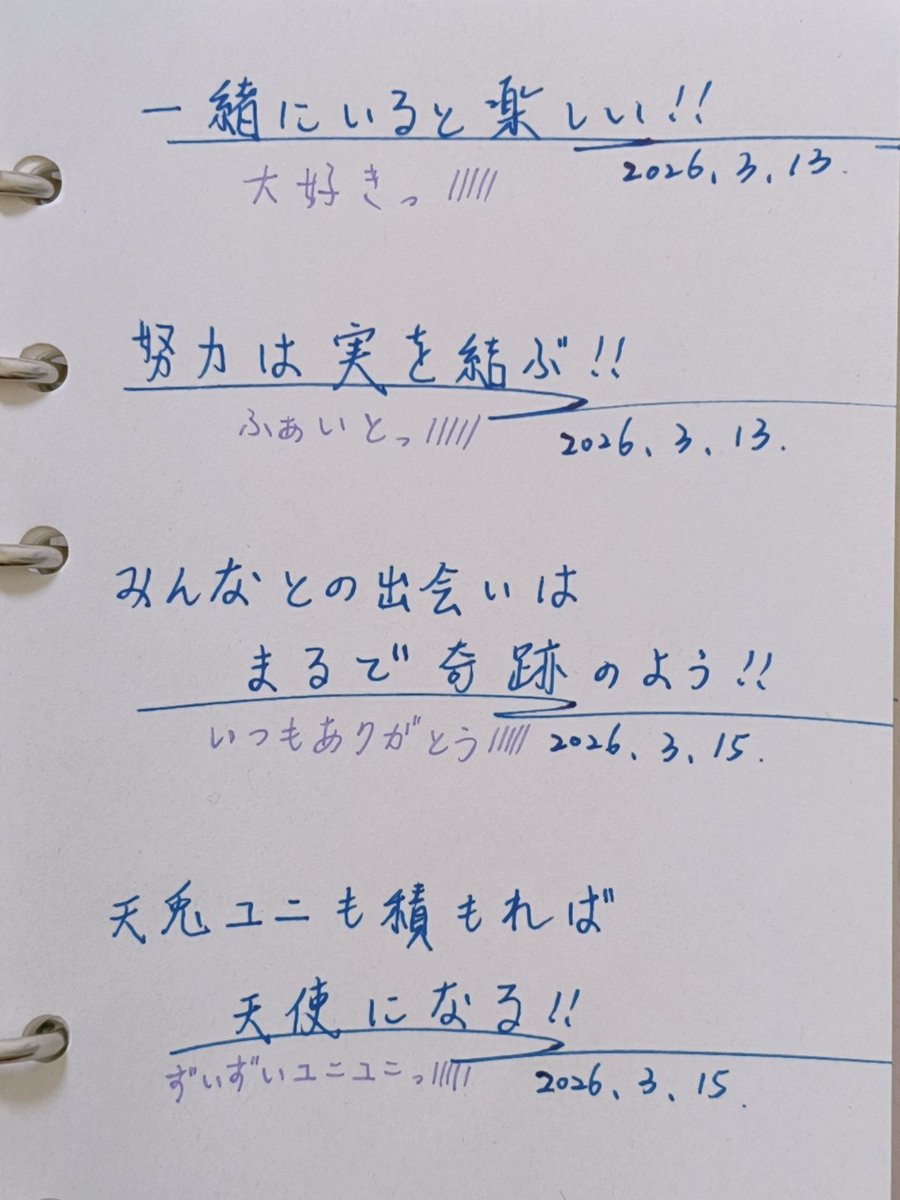 一緒にいると楽しい!!
大好きっ/////
2026.3.13.
努力は実を結ぶ!!
ふぁいとっ/////
2026.3.13.
みんなとの出会いは
まるで奇跡のよう!!
いつもありがとう/////
2026.3.15.
天兎ユニも積もれば
天使になる!!
ずいずいユニユニっ/////
2026.3.15.